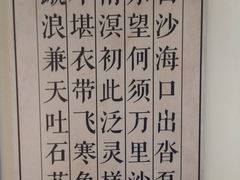 白沙海口出沓磊
望何须万里沙
南溟初此泛灵槎
堪衣带飞寒色
浪兼天吐石花